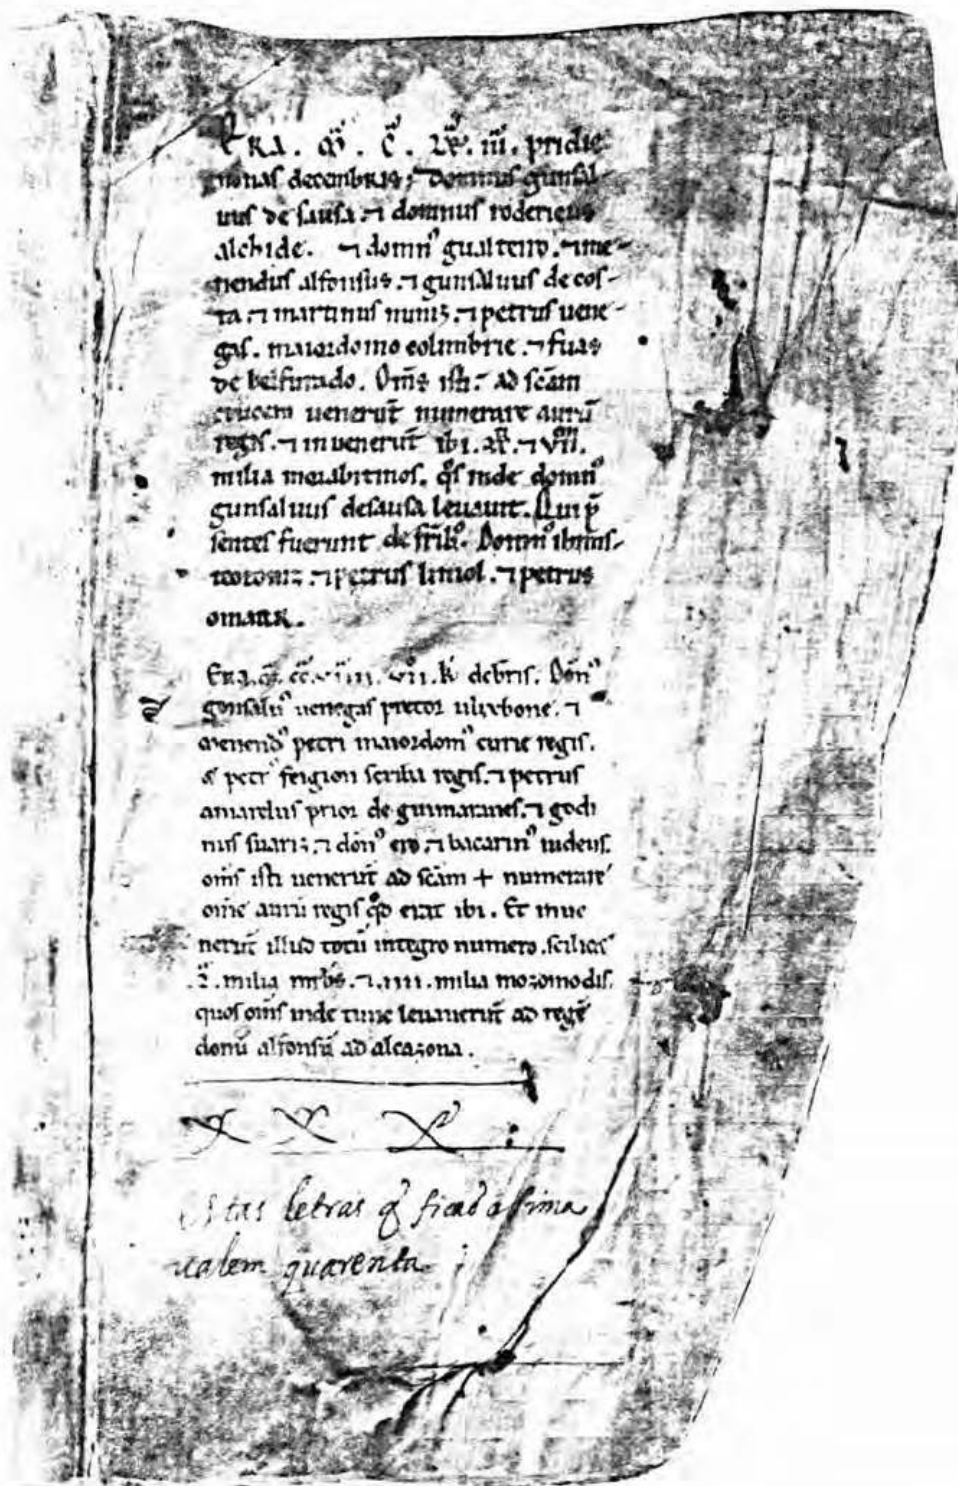 ERA. Mª. Cª. LXª. IIIª. pridie
nonas decembris; domnus gunsal-
uus de sausa. ⁊ domnus rodericus
alchide. ⁊ domnꝰ gualterio. ⁊ me-
nendus alfonsus. ⁊ gunsaluus de cos-
ta. ⁊ martinus nuniz. ⁊ petrus uene-
gas. maiordomo colimbrie. ⁊ fuas
de belfurado. Om̄s isti. ad sc̄am
crucem uenerūt numerare aurū
regis. ⁊ inuenerūt ibi. ⁊ VII.
milia morabitinos. q̊s inde domnꝰ
gunsaluus desausa leuauit. Qui p̄
sentes fuerunt de fr̄ibꝰ. Domnꝰ iohannis
⁊ petrus ⁊ petrus
omariz.
Era. Mª. ccª. VIIII. VII. kł debris. Donꝰ
gonsaluꝰ uenegas pretor ulixbone. ⁊
Menendꝰ petri maiordomꝰ curie regis.
⁊ petrꝰ feigion scriba regis. ⁊ petrus
amarelus prior de guimaranes. ⁊ godi
nus suariz. ⁊ donꝰ ero. ⁊ bacarinꝰ iudeus.
om̄s isti uenerūt ad sc̄am + numerare
om̄e aurū regis qd̄ erat ibi. Et inue
nerūt illud totū integro numero. scilicet
milia mr̄bs. ⁊. IIII. milia mozomodis.
quos om̄s inde tunc leuauerūt ad regē
donū alfonsū ad alcazona.
X X X
Estas letras q̃ ficaõ assima
ualem quarenta.